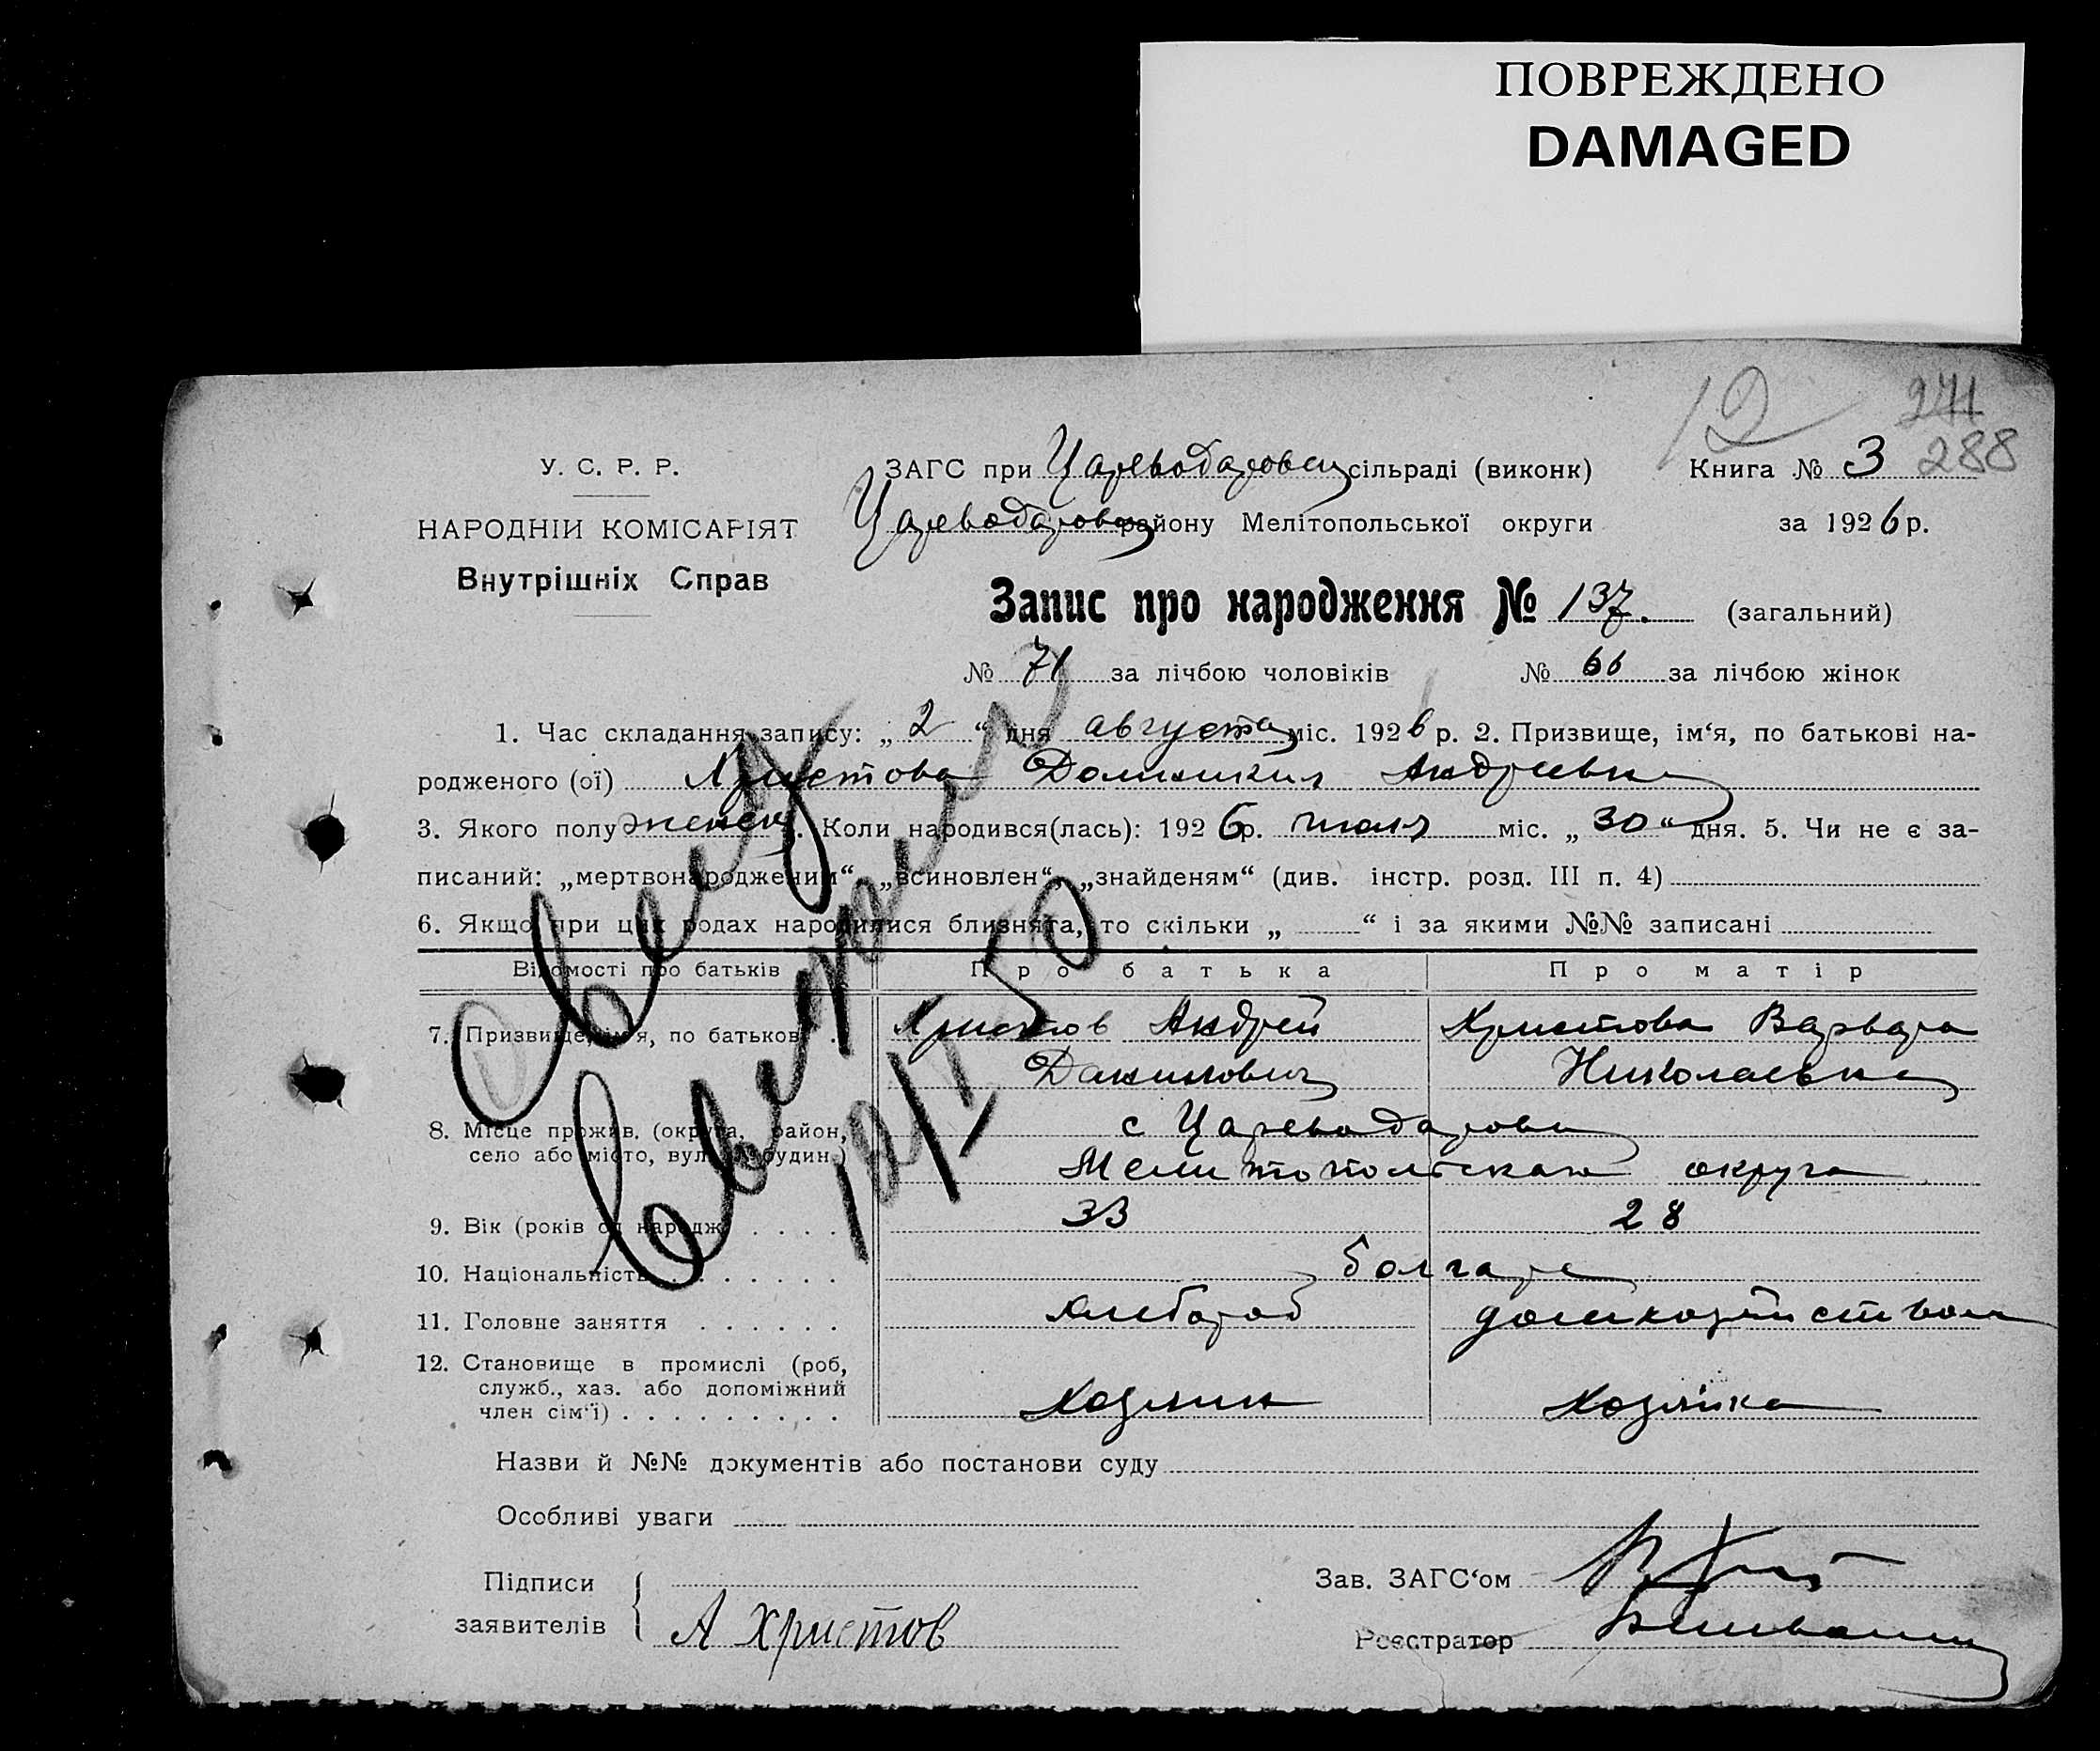 ПОВРЕЖДЕНО
DAMAGED
12 241
288
У. С. Р. Р.
НАРОДНІЙ КОМІСАРІЯТ
Внутрішніх Справ
ЗАГС при Цареводаровск сільраді (виконк) Книга № 3
Цареводаровск району Мелітопольської округи за 1926 р.
Запис про народження № 137. (загальний)
№ 71 за лічбою чоловіків № 66 за лічбою жінок
1. Час складання запису: „ 2 “ дня августа міс. 1926 р. 2. Призвище, ім‘я, по батькові на-
родженого (ої) Христова Домникия Андреевна
3. Якого полу женск. Коли народився(лась): 1926 р. июля міс. „ 30 “ дня. 5. Чи не є за-
писаний: „мертвонародженим“, „всиновлен“, „знайденям“ (див. інстр. розд. III п. 4)
6. Якщо при цих родах народилися близнята, то скільки „ “ і за якими №№ записані
Відомості про батьків Про батька Про матір
7. Призвище, ім‘я, по батькові . Христов Андрей Христова Варвара
Данилович Николаевна
8. Місце прожив. (округа, район, с Цареводаровка
село або місто, вул. будин.) Мелитопольская округа
9. Вік (років од народж. . . . . 33 28
10. Національність . . . . . . болгаре
11. Головне заняття . . . . . . хлебороб домхозяйством
12. Становище в промислі (роб,
служб., хаз. або допоміжний хозяин хозяйка
член сім‘ї) . . . . . . . . .
Назви й №№ документів або постанови суду
Особливі уваги
Підписи Зав. ЗАГС‘ом
заявителів А Христов Реєстратор